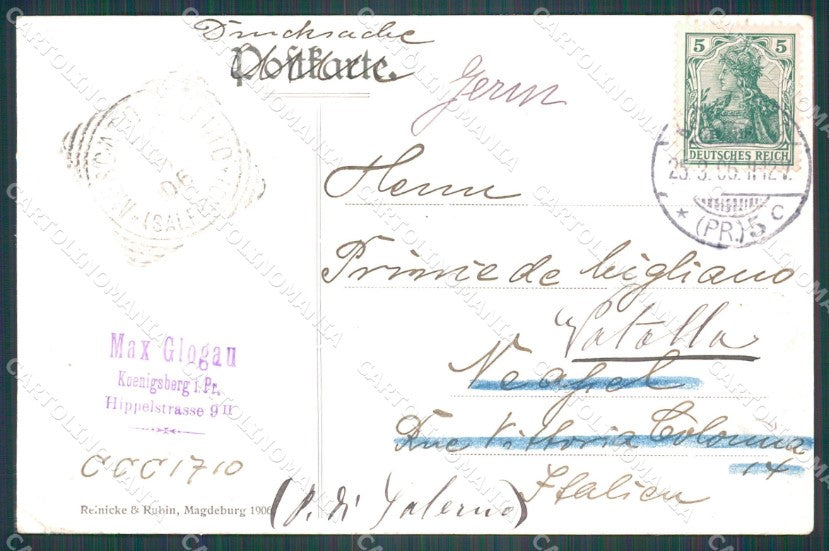 Drucksache
Postkarte.
Germ
5 5
DEUTSCHES REICH
25.3.06.11-12V.
* (PR.) 5 c
06
(SALERNO)
Herrn
Principe de Migliano
Vatolla
Neapel
Due Vittoria Colonna
14
Italien
(P. di Salerno)
Max Glogau
Koenigsberg i. Pr.
Hippelstrasse 9 II
CCC1710
Reinicke & Rubin, Magdeburg 1906
CARTOLINOMANIA